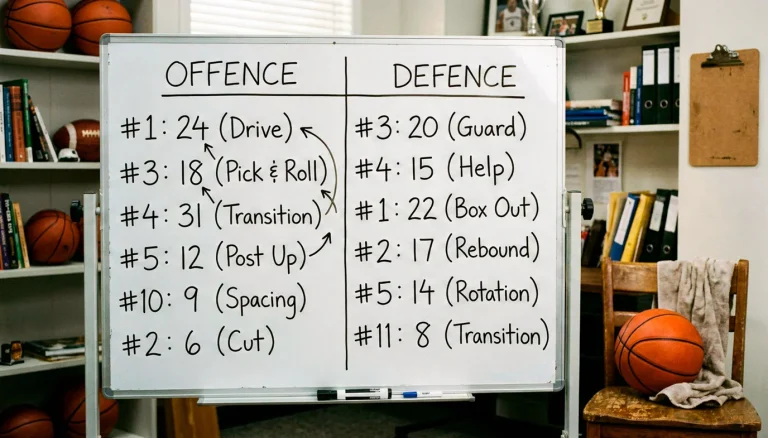 OFFENCE
#1: 24 (Drive)
#3: 18 (Pick & Roll)
#4: 31 (Transition)
#5: 12 (Post Up)
#10: 9 (Spacing)
#2: 6 (Cut)
DEFENCE
#3: 20 (Guard)
#4: 15 (Help)
#1: 22 (Box Out)
#2: 17 (Rebound)
#5: 14 (Rotation)
#11: 8 (Transition)